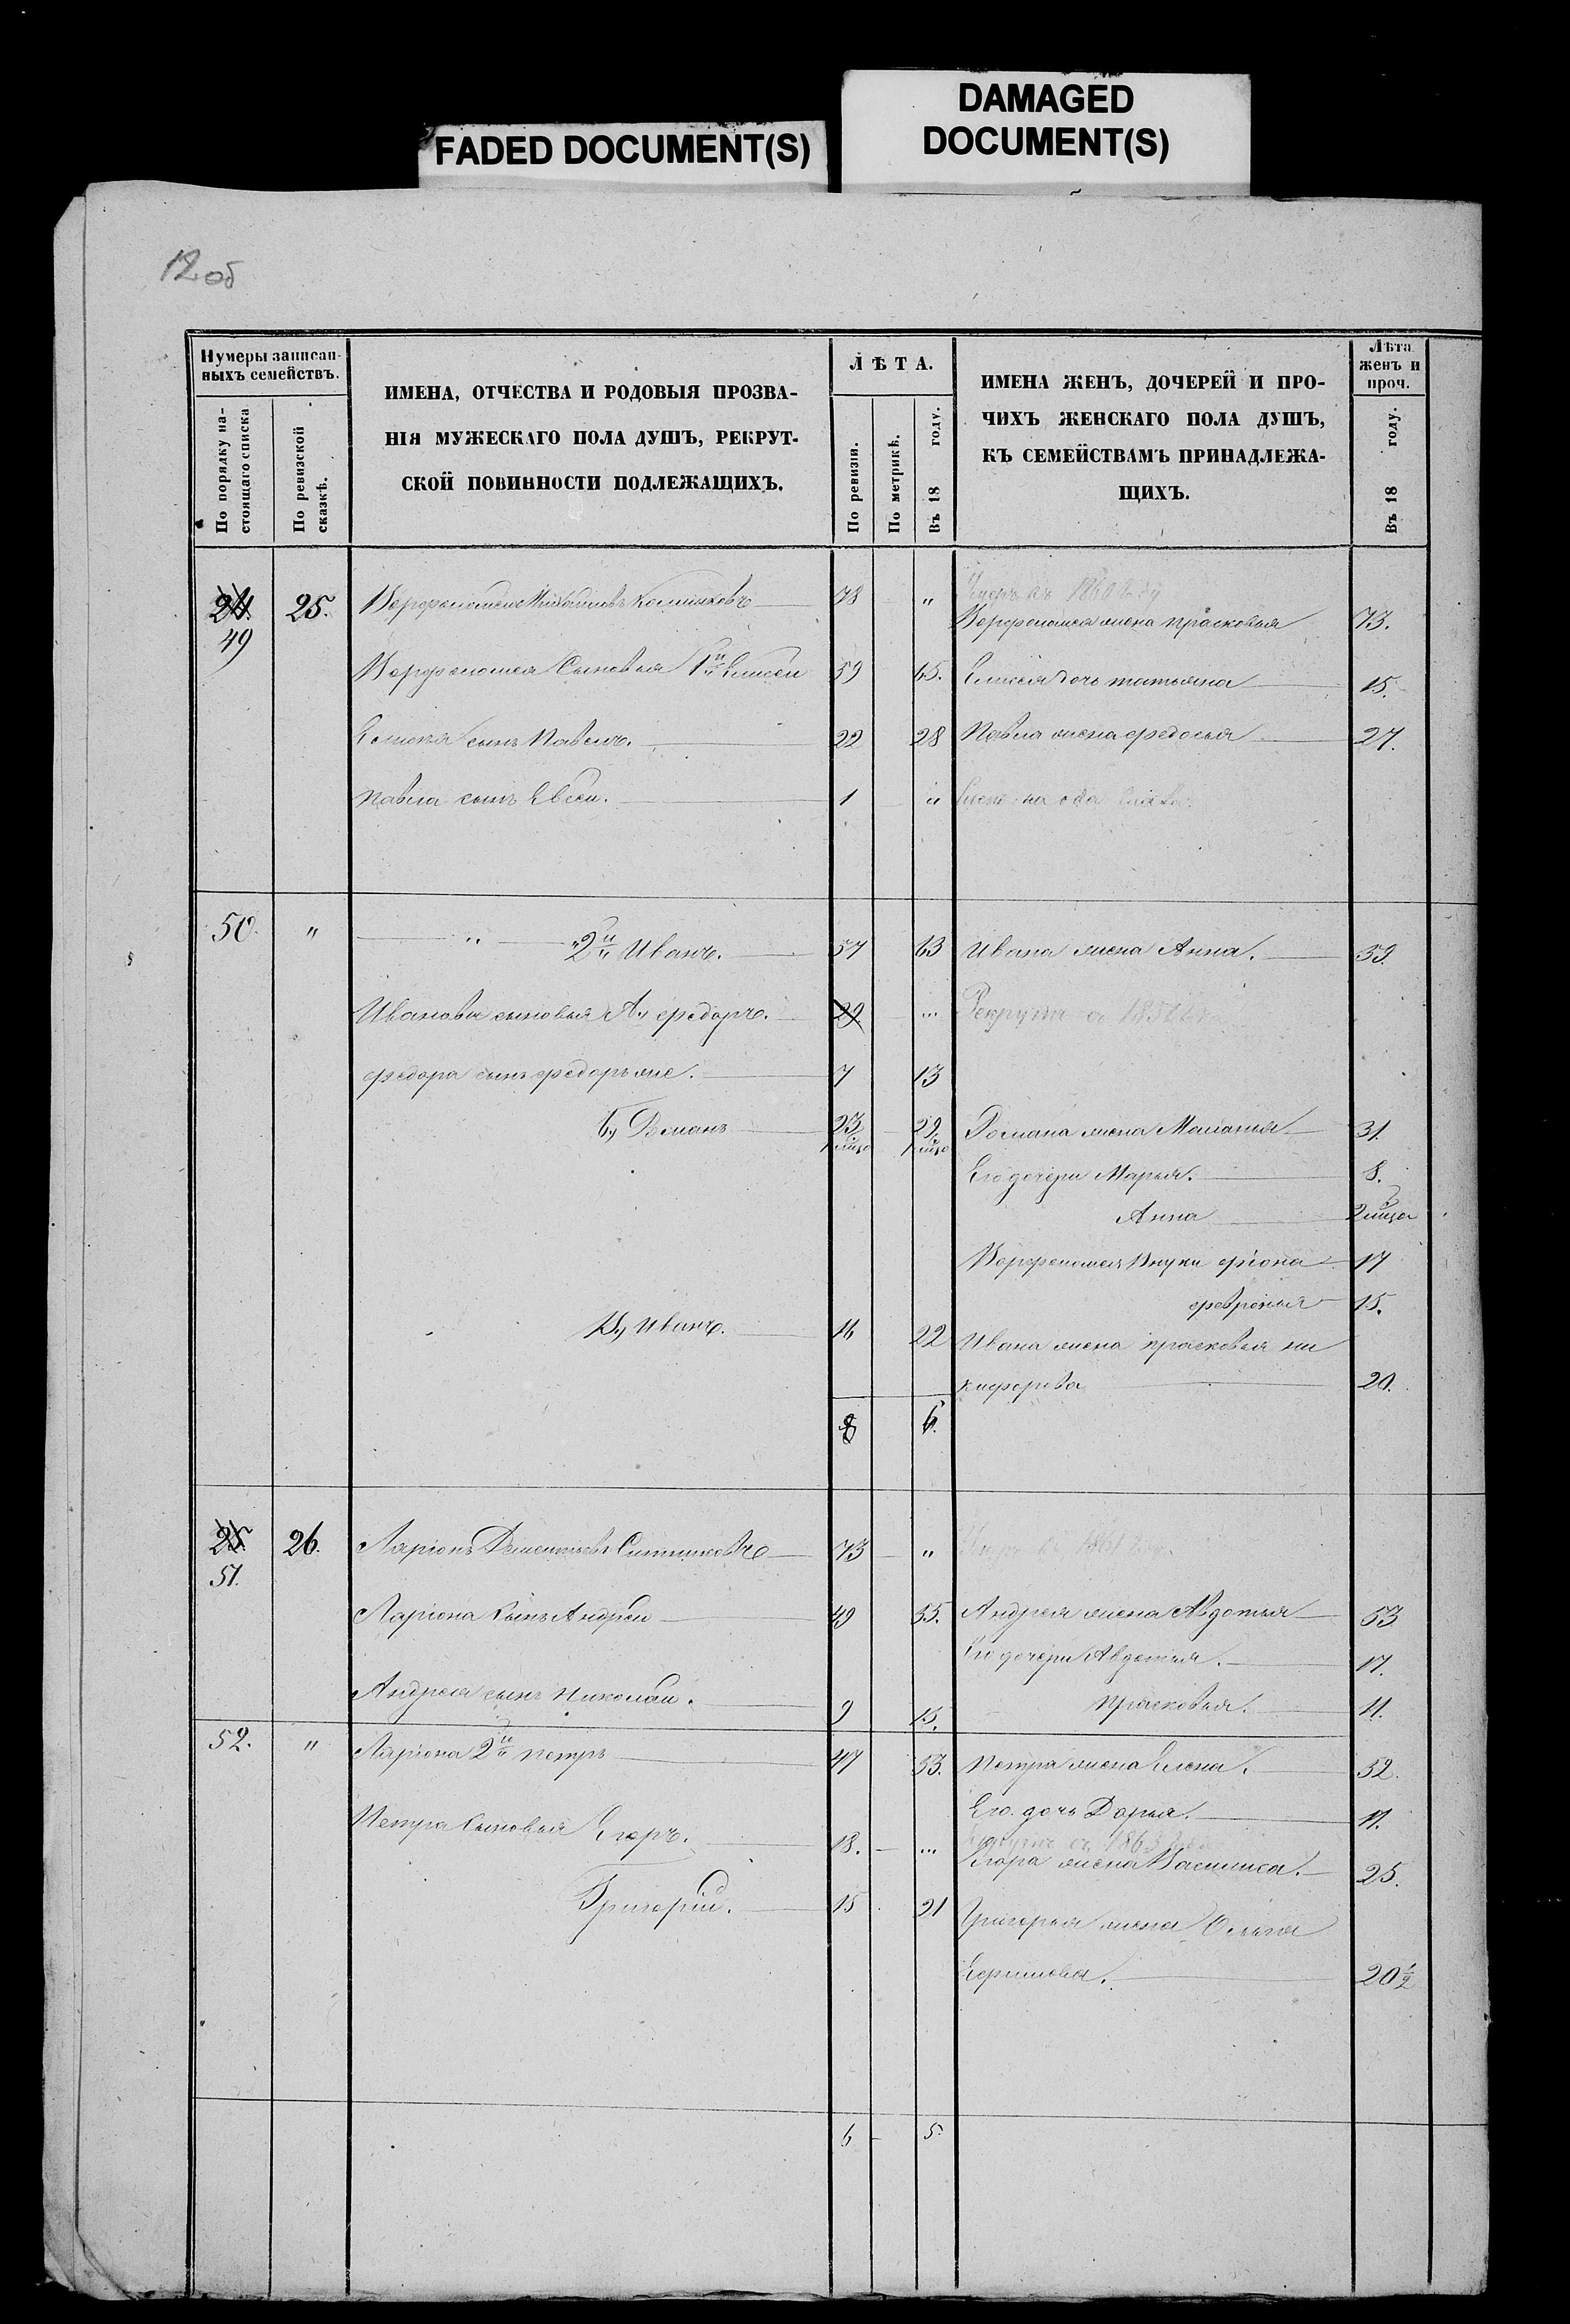 FADED DOCUMENT(S)
DAMAGED
DOCUMENT(S)
12 об
Нумеры записан-
ныхъ семействъ.
По порядку на-
стоящаго списка
По ревизской
сказкѣ.
ИМЕНА, ОТЧЕСТВА И РОДОВЫЯ ПРОЗВА-
НІЯ МУЖЕСКАГО ПОЛА ДУШЪ, РЕКРУТ-
СКОЙ ПОВИННОСТИ ПОДЛЕЖАЩИХЪ.
ЛѢТА.
По ревизіи.
По метрикѣ.
Въ 18 году.
ИМЕНА ЖЕНЪ, ДОЧЕРЕЙ И ПРО-
ЧИХЪ ЖЕНСКАГО ПОЛА ДУШЪ,
КЪ СЕМЕЙСТВАМЪ ПРИНАДЛЕЖА-
ЩИХЪ.
Лѣта
женъ и
проч.
Въ 18 году.
24. 25. Ворфоломей Михайловъ 78 "
49 Ворфоломея жена прасковья 73.
Ворфоломея Сыновья 1й Елисей 59 65. Елисея дочь татьяна 15.
Елисея сынъ Павелъ. 22 28 Павла жена федосья 27.
Павла сынъ Евсей. 1 "
50. " " 2й Иванъ. 57 63 Ивана жена Анна. 59.
Ивановы сыновья А., федоръ. 29 ... Рекрутъ съ
федора сынъ федоръ же. 7 13
Б., Романъ 23 29 Романа жена Маланья 31.
Его дочери Марья. 8.
Анна 2 мѣца
Ворфоломея Внуки фіона 17
февронья 15.
В., Иванъ. 16 22 Ивана жена прасковья ни
кифорова 20.
8 6.
25. 26. Ларіонъ Дементьевъ Ситниковъ 73 "
51.
Ларіона Сынъ Андрей 49 55. Андрея жена Авдотья 53
Его дочери Авдотья. 17.
Андрея сынъ Николай. 9 15. Прасковья. 11.
52. " Ларіона 2й петръ 47 53. Петра жена Елена. 52.
Его дочь Дарья. 11.
Петра Сыновья Егоръ. 18. ...
Егора жена Василиса. 25.
Григорій. 15 21 Григорья жена Ольга
Ефимова. 20 1/2
6 5.